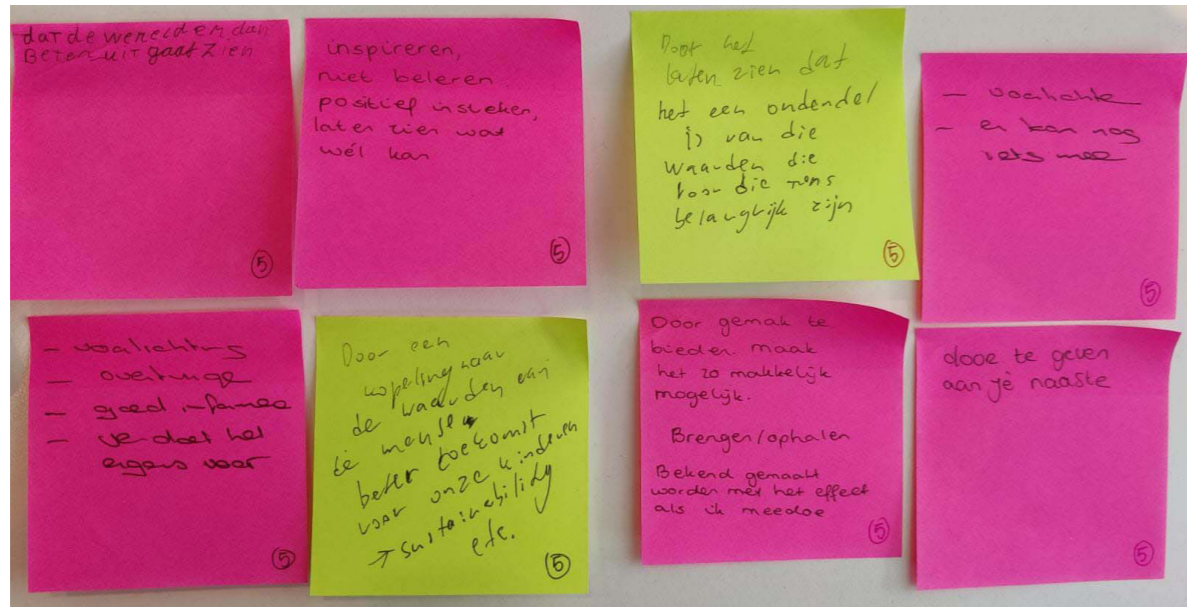 dat de wereld er dan
Beter uit gaat zien
5
inspireren,
niet beleren
positief insteken,
laten zien wat
wél kan
5
Door het
laten zien dat
het een onderdeel
is van die
waarden die
voor die mens
belangrijk zijn
5
- voorlichte
- er kan nog
iets mee
5
- voorlichting
- overtuige
- goed informee
- je doet het
ergens voor
5
Door een
kopeling naar
de waarden van
de mensen
beter toekomst
voor onze kinderen
→ sustainability
etc.
5
Door gemak te
bieden. maak
het zo makkelijk
mogelijk.
Brengen/ophalen
Bekend gemaakt
worden met het effect
als ik meedoe
5
door te geven
aan je naaste
5